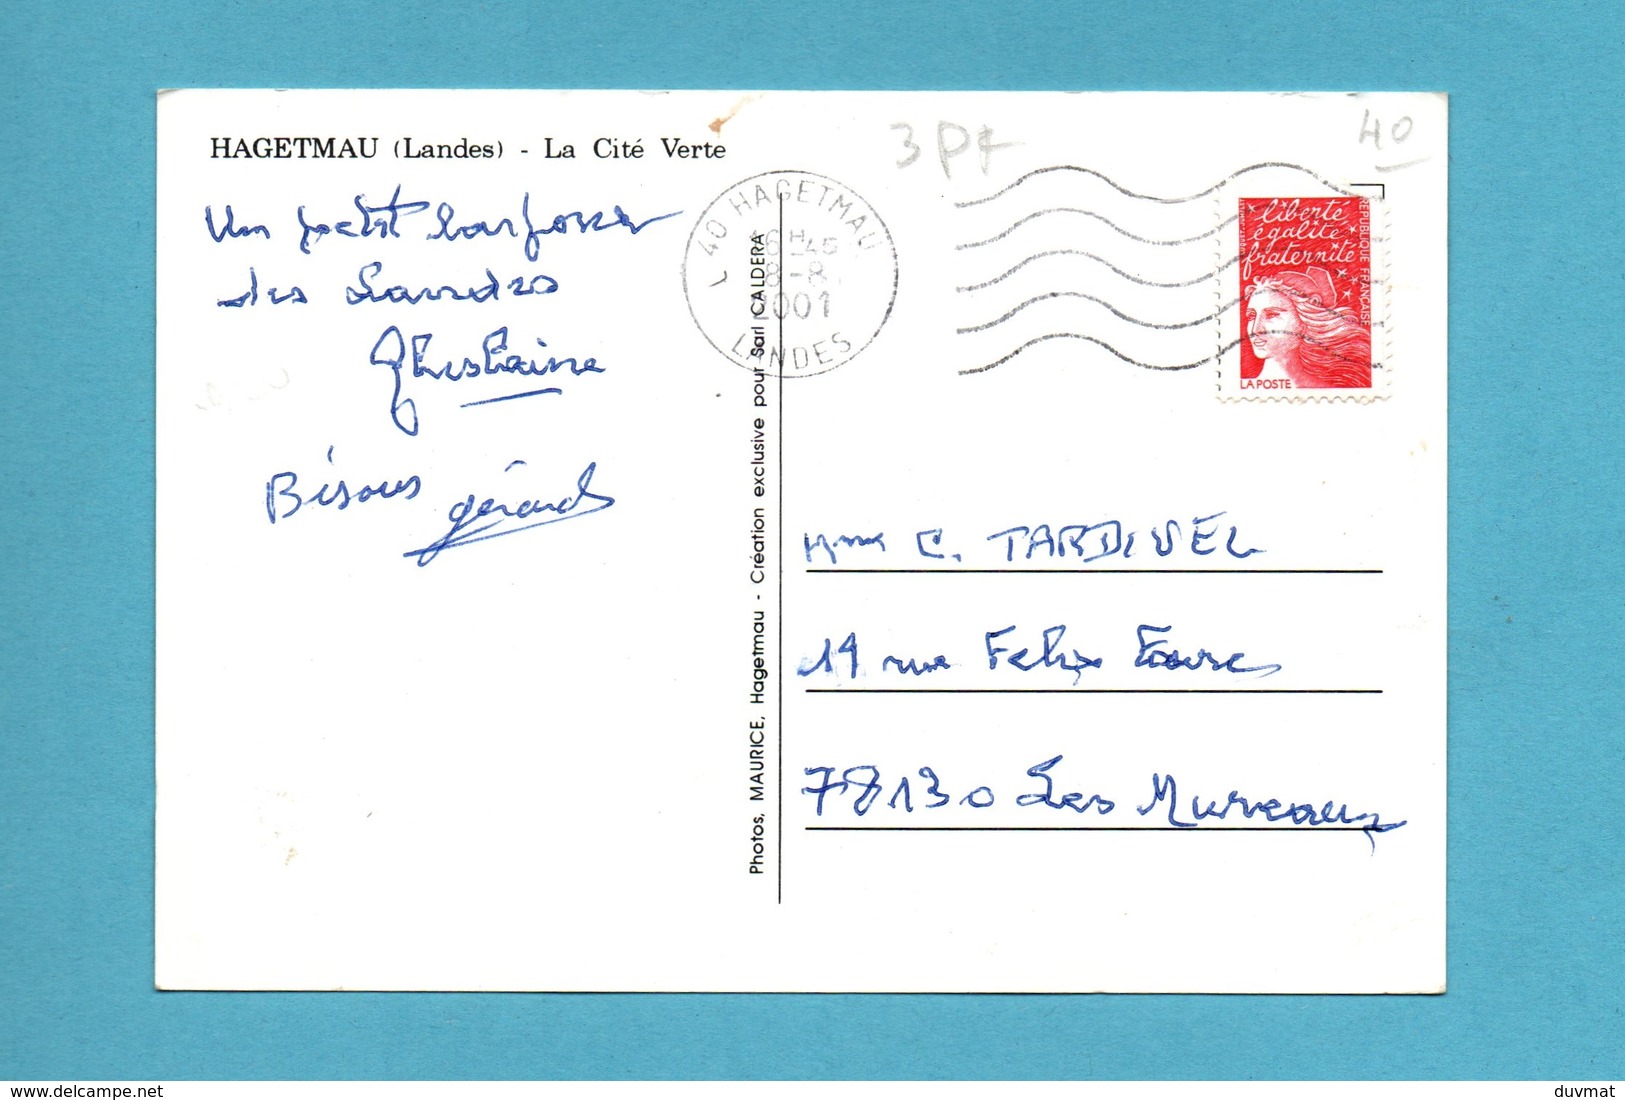 HAGETMAU (Landes) - La Cité Verte
3 Pf
40
Un petit
des Landes
Ghislaine
Bisous gérard
40 HAGETMAU
16 H 45
8-8
2001
LANDES
liberté
égalité
fraternité
RÉPUBLIQUE FRANÇAISE
LA POSTE
Photos, MAURICE, Hagetmau - Création exclusive pour Sarl CALDERA
Mme C. TARDIVEL
19 rue Felix Faure
78130 Les Mureaux
delcampe.net
duvmat